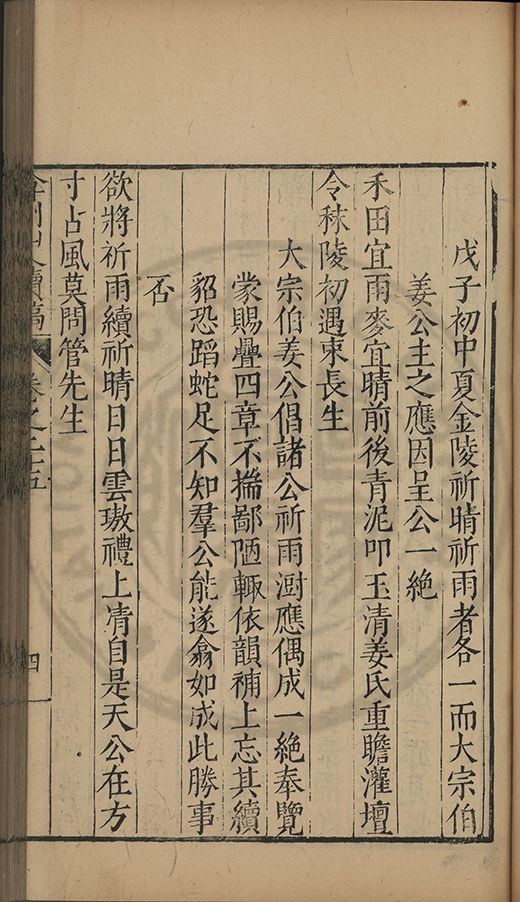 戊子初中夏金陵祈晴祈雨者各一而大宗伯
姜公主之應因呈公一絶
禾田宜雨麥宜晴前後青泥叩玉清姜氏重瞻灌壇
令秣陵初遇束長生
大宗伯姜公倡諸公祈雨澍應偶成一絶奉覽
蒙賜疊四章不揣鄙陋輒依韻補上忘其續
貂恐蹈蛇足不知羣公能遂翕如成此勝事
否
欲將祈雨續祈晴日日雲璈禮上清自是天公在方
寸占風莫問管先生
卷之二十五
四